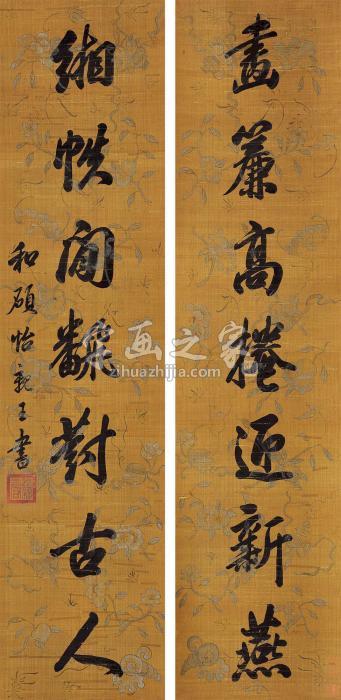 畫簾高捲迎新燕
緗帙閒翻對古人
和碩怡親王書
画之家
ihuazhijia.com